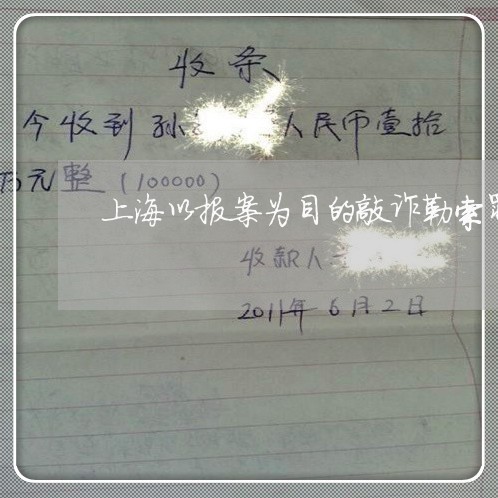 收条
今收到孙 人民币壹拾
万元整(100000)
上海以报案为目的敲诈勒索罪
收款人
2011年6月2日